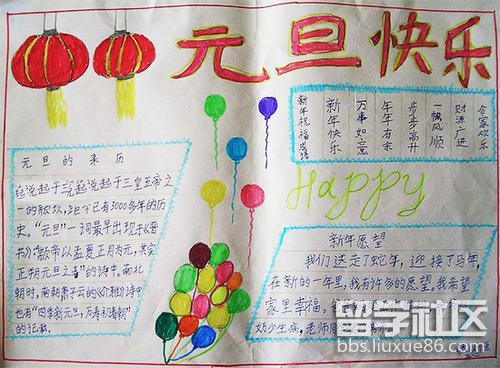 元旦快乐
元旦的来历
起说起于三皇五帝之
一的颛顼,距今已有3000多年的历
史。"元旦"一词最早出现于《晋
书》:"颛帝以孟夏正月为元,其实
正朔元旦之春"的诗中。南北
朝时,南朝萧子云的《介雅》诗中
也有"四季新元旦,万寿初春朝"
的记载。
新年祝福成语
新年快乐
万事如意
年年有余
步步高升
一帆风顺
财源广进
合家欢乐
Happy
新年愿望
我们送走了蛇年,迎接了马年,
在新的一年里,我有许多的愿望,我希望
家里幸福,
奶少生病,老师
留学社区
bbs.liuxue86.com